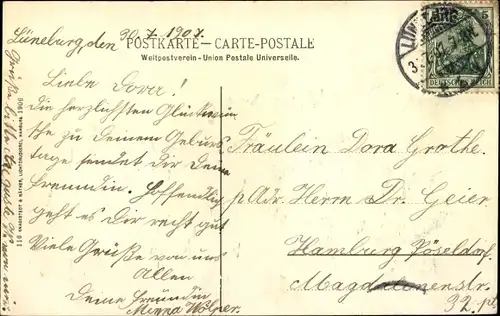 Lüneburg, den 30.7.1907.
POSTKARTE — CARTE-POSTALE
Weltpostverein - Union Postale Universelle.
Liebe Dora!
die herzlichsten Glückwün
sche zu Deinem Geburts
tage sendet dir Deine
Freundin. Hoffendlich
geht es Dir recht gut
Viele Grüße von uns
Allen
Deine Freundin
Minna Wolper.
Fräulein Dora Grothe.
p Adr. Herrn Dr. Geier
Hamburg Pöseldorf.
Magdalenenstr.
32. pt.
DEUTSCHES
5